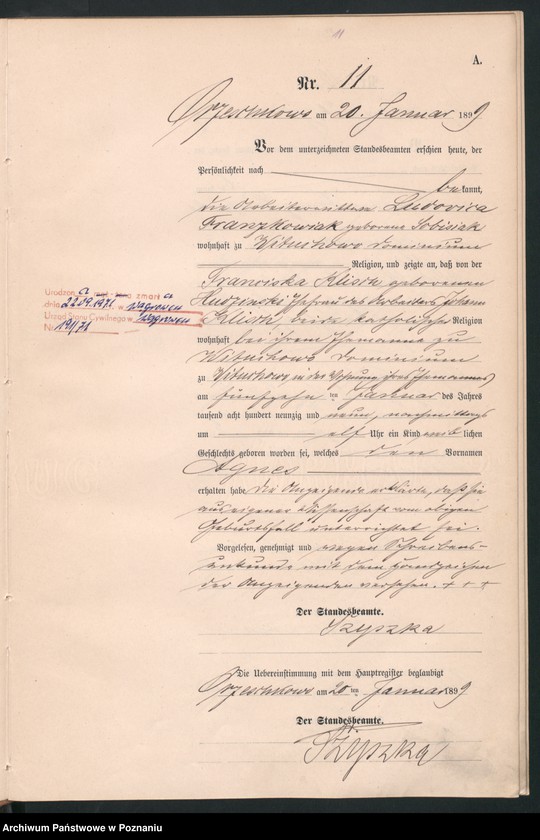 11
A.
Nr. 11
am 20. Januar 1899
Vor dem unterzeichneten Standesbeamten erschien heute, der
Persönlichkeit nach
bekannt,
die Arbeiterwittwe Ludovica
Franzkowiak geborene Sobisiak
wohnhaft zu Wituchowo Dominium
Religion, und zeigte an, daß von der
Franciska Klisch geborenen
Hudzinski Ehefrau des Arbeiters Johann
Klisch, beide katholischer Religion
wohnhaft bei ihrem Ehemanne zu
Wituchowo Dominium
zu Wituchowo in der Wohnung ihres Ehemannes
am fünfzehnten Januar des Jahres
tausend acht hundert neunzig und neun, nachmittags
um elf Uhr ein Kind weiblichen
Geschlechts geboren worden sei, welches den Vornamen
Agnes
erhalten habe. Die Anzeigende erklärte, daß sie
aus eigener Wissenschaft vom obigen
Geburtsfall unterrichtet sei.
Vorgelesen, genehmigt und wegen Schreibens-
unkunde mit dem Handzeichen
der Anzeigenden versehen. + + +
Der Standesbeamte.
Szyszka
Die Uebereinstimmung mit dem Hauptregister beglaubigt
am 20ten Januar 1899
Der Standesbeamte.
Szyszka
Urodzona zmarła
dnia 22.09.1971 w
Urząd Stanu Cywilnego w
Nr 191/71
Archiwum Państwowe w Poznaniu